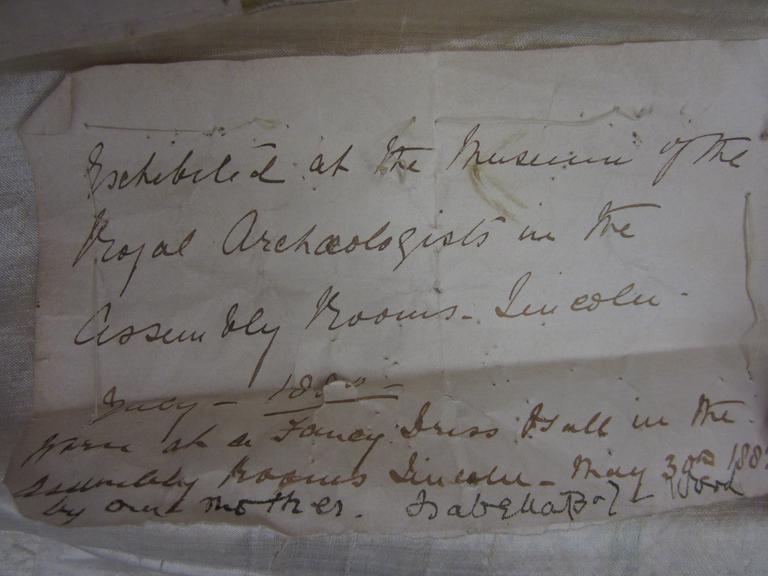 Exhibited at the Museum of the
Royal Archæologists in the
Assembly Rooms - Lincoln -
July -
Worn at a Fancy Dress Ball in the
Assembly Rooms Lincoln - May
by our mother. Isabella Wood